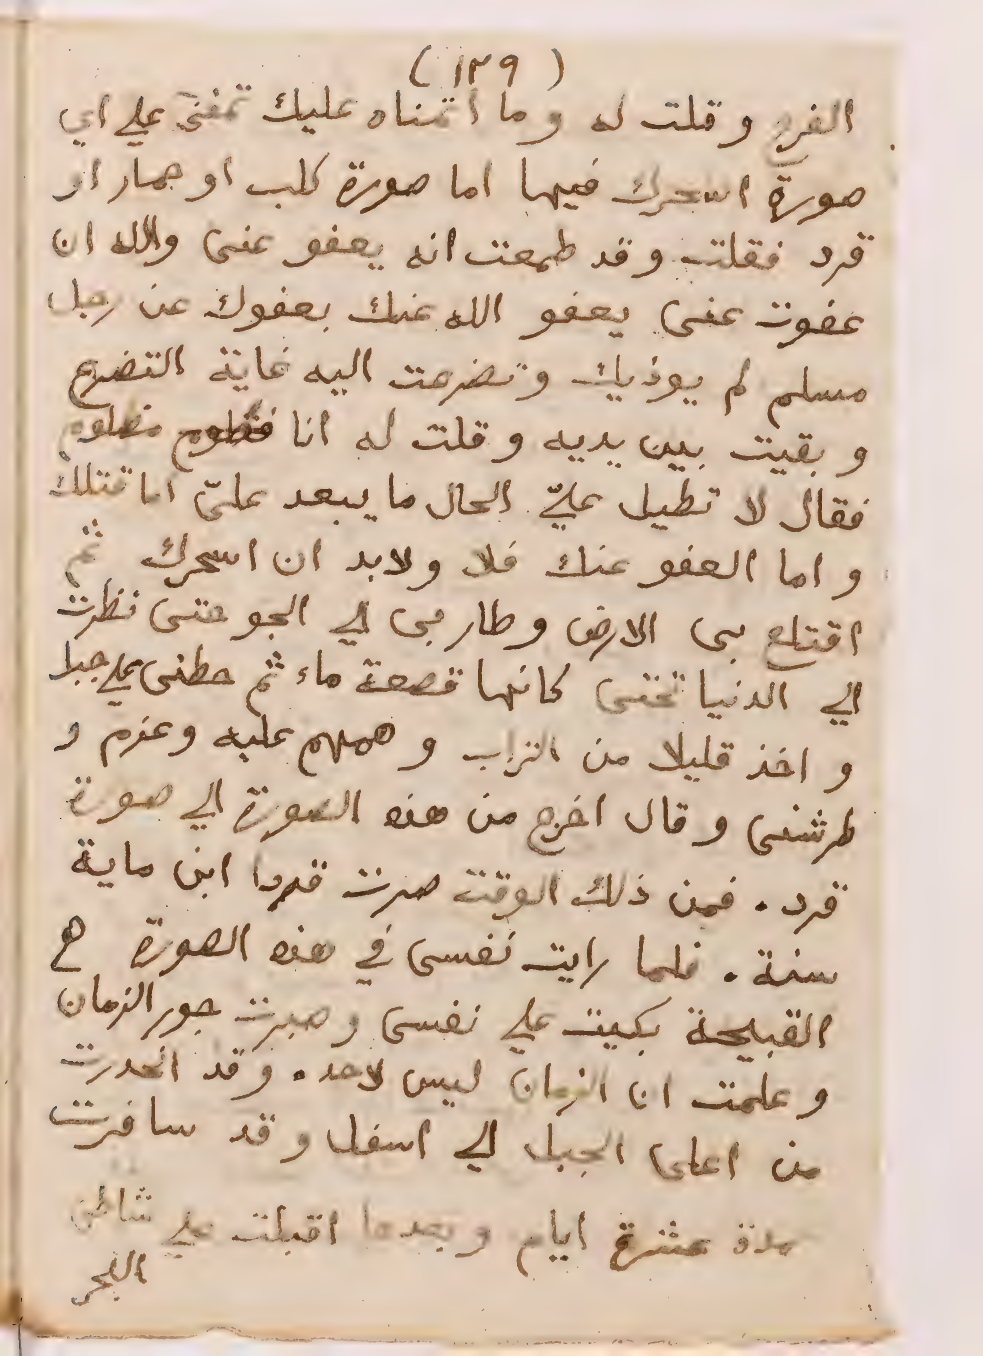 (١٢٩)
الفرج وقلت له وما اتمناه عليك تمنى علي اي
صورة اسحرك فيها اما صورة كلب او حمار او
قرد فقلت وقد طمعت انه يعفو عنى والله ان
عفوت عنى يعفو الله عنك بعفوك عن رجل
مسلم لم يوذيك وتضرعت اليه غاية التضرع
و بقيت بين يديه وقلت له انا مظلوم
فقال لا تطيل عليّ الحال ما يبعد علىّ اما قتلك
و اما العفو عنك فلا ولابد ان اسحرك ثم
اقتلع بى الارض وطار بى الي الجو حتى نظرت
الي الدنيا تحتى كانها قصعة ماء ثم حطنى علي جبل
و اخذ قليلا من التراب و همهم عليه وعزم و
طرشنى وقال اخرج من هذه الصورة الي صورة
قرد . فمن ذلك الوقت صرت قردا ابن ماية
سنة . فلما رايت نفسى في هذه الصورة
القبيحة بكيت علي نفسى وصبرت جور الزمان
و علمت ان الزمان ليس لاحد . وقد انحدرت
من اعلى الجبل الي اسفل وقد سافرت
مدة عشرة ايام وبعدها اقبلت علي شاطئ
البحر